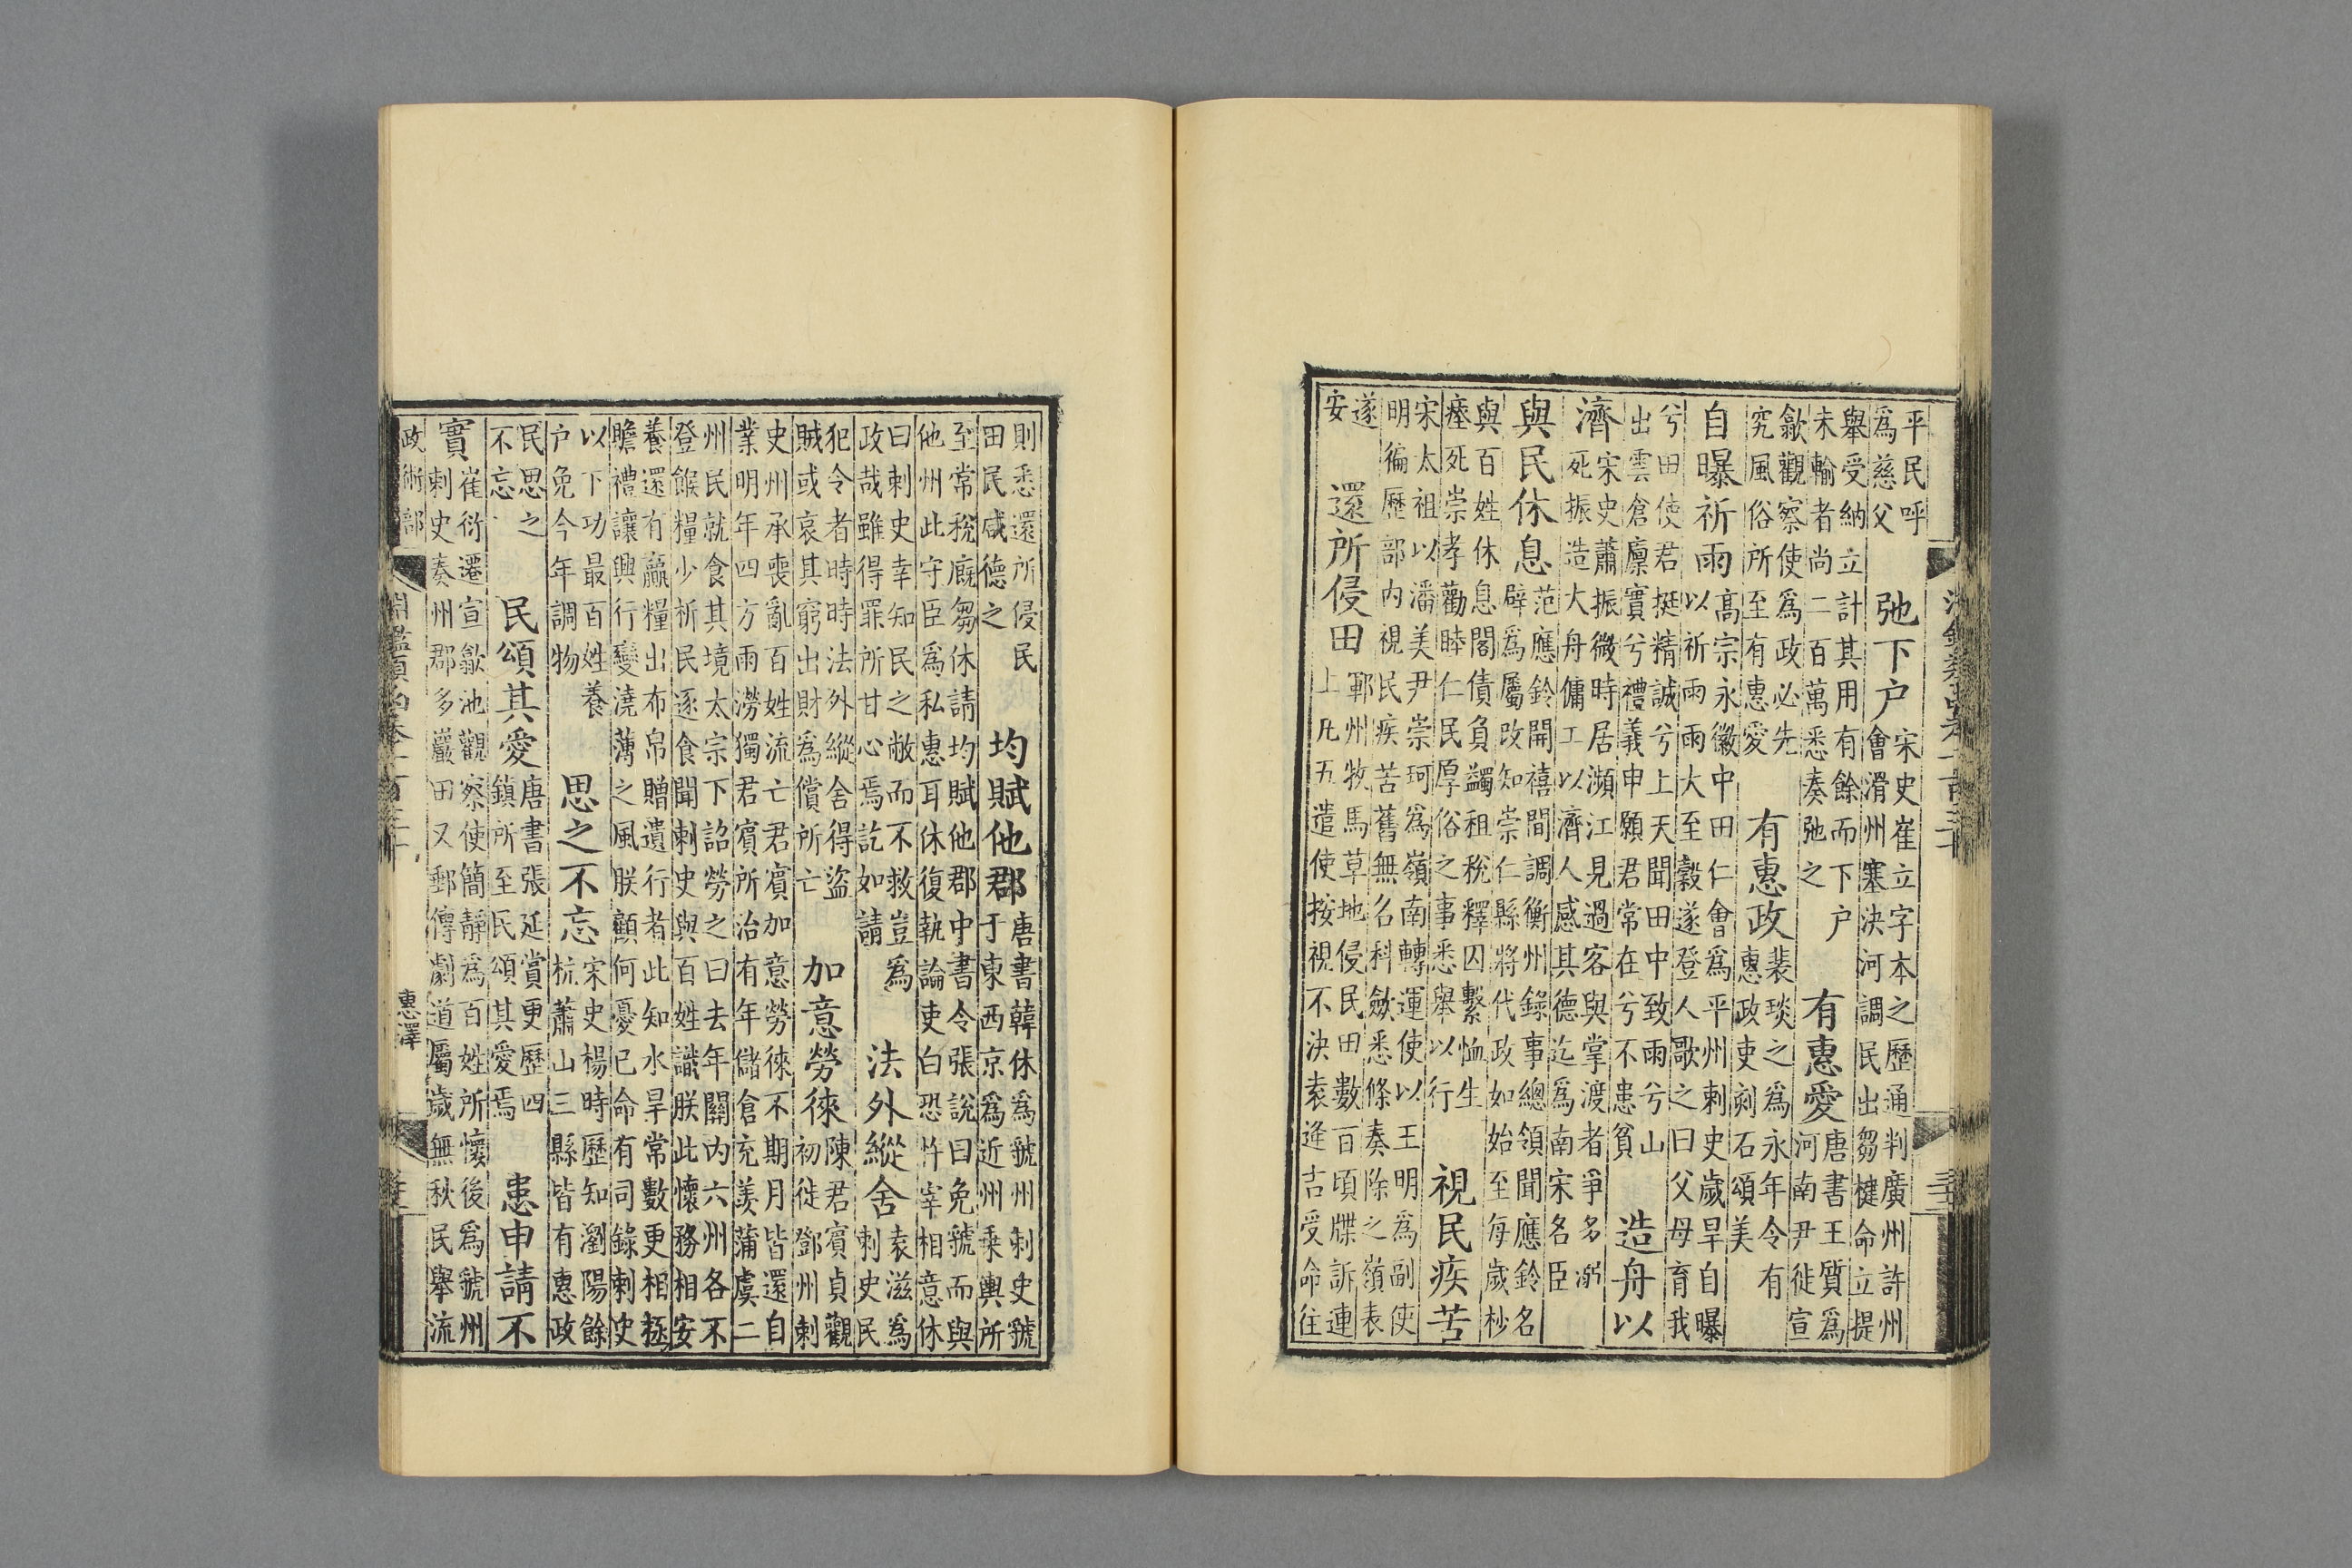 平民呼
爲慈父
弛下户
宋史崔立字本之歷通判廣州許州
會滑州塞決河調民出芻楗命立提
舉受納立計其用有餘而下户
未輸者尚二百萬悉奏弛之
有惠愛
唐書王質爲
河南尹徙宣
歙觀察使爲政必先
究風俗所至有惠愛
有惠政
裴琰之爲永年令有
惠政吏刻石頌美
自曝祈雨
高宗永徽中田仁會爲平州刺史歲旱自曝
以祈雨雨大至穀遂登人歌之曰父母育我
兮田使君挺精誠兮上天聞田中致雨兮山
出雲倉廩實兮禮義申願君常在兮不患貧
造舟以
濟
宋史蕭振微時居瀕江見過客與掌渡者爭多溺
死振造大舟傭工以濟人感其德迄爲南宋名臣
與民休息
范應鈴開禧間調衡州錄事總領聞應鈴名
辟爲屬改知崇仁縣將代政如始至每歲杪
與百姓休息閣債負蠲租稅釋囚繫恤生
瘞死崇孝勸睦仁民厚俗之事悉舉以行
視民疾苦
宋太祖以潘美尹崇珂爲嶺南轉運使以王明爲副使
明徧歷部内視民疾苦舊無名科斂悉條奏除之嶺表
遂
安
還所侵田
鄆州牧馬草地侵民田數百頃牒訴連
上凡五遣使按視不決袁逢吉受命往
則悉還所侵民
田民咸德之
均賦他郡
唐書韓休爲虢州刺史虢
于東西京爲近州乘輿所
至常稅廐芻休請均賦他郡中書令張說曰免虢而與
他州此守臣爲私惠耳休復執論吏白恐忤宰相意休
曰刺史幸知民之敝而不救豈爲
政哉雖得罪所甘心焉訖如請
法外縱舍
袁滋爲
刺史民
犯令者時時法外縱舍得盜
賊或哀其窮出財爲償所亡
加意勞徠
陳君賓貞觀
初徙鄧州刺
史州承喪亂百姓流亡君賓加意勞徠不期月皆還自
業明年四方雨澇獨君賓所治有年儲倉充羨蒲虞二
州民就食其境太宗下詔勞之曰去年關内六州各不
登餱糧少析民逐食聞刺史與百姓識朕此懷務相安
養還有贏糧出布帛贈遺行者此知水旱常數更相拯
贍禮讓興行變澆薄之風朕顧何憂已命有司錄刺史
以下功最百姓養
户免今年調物
思之不忘
宋史楊時歷知瀏陽餘
杭蕭山三縣皆有惠政
民思之
不忘
民頌其愛
唐書張延賞更歷四
鎮所至民頌其愛焉
患申請不
實
崔衍遷宣歙池觀察使簡靜爲百姓所懷後爲虢州
刺史奏州郡多巖田又郵傳劇道屬歲無秋民舉流
政術部
惠澤